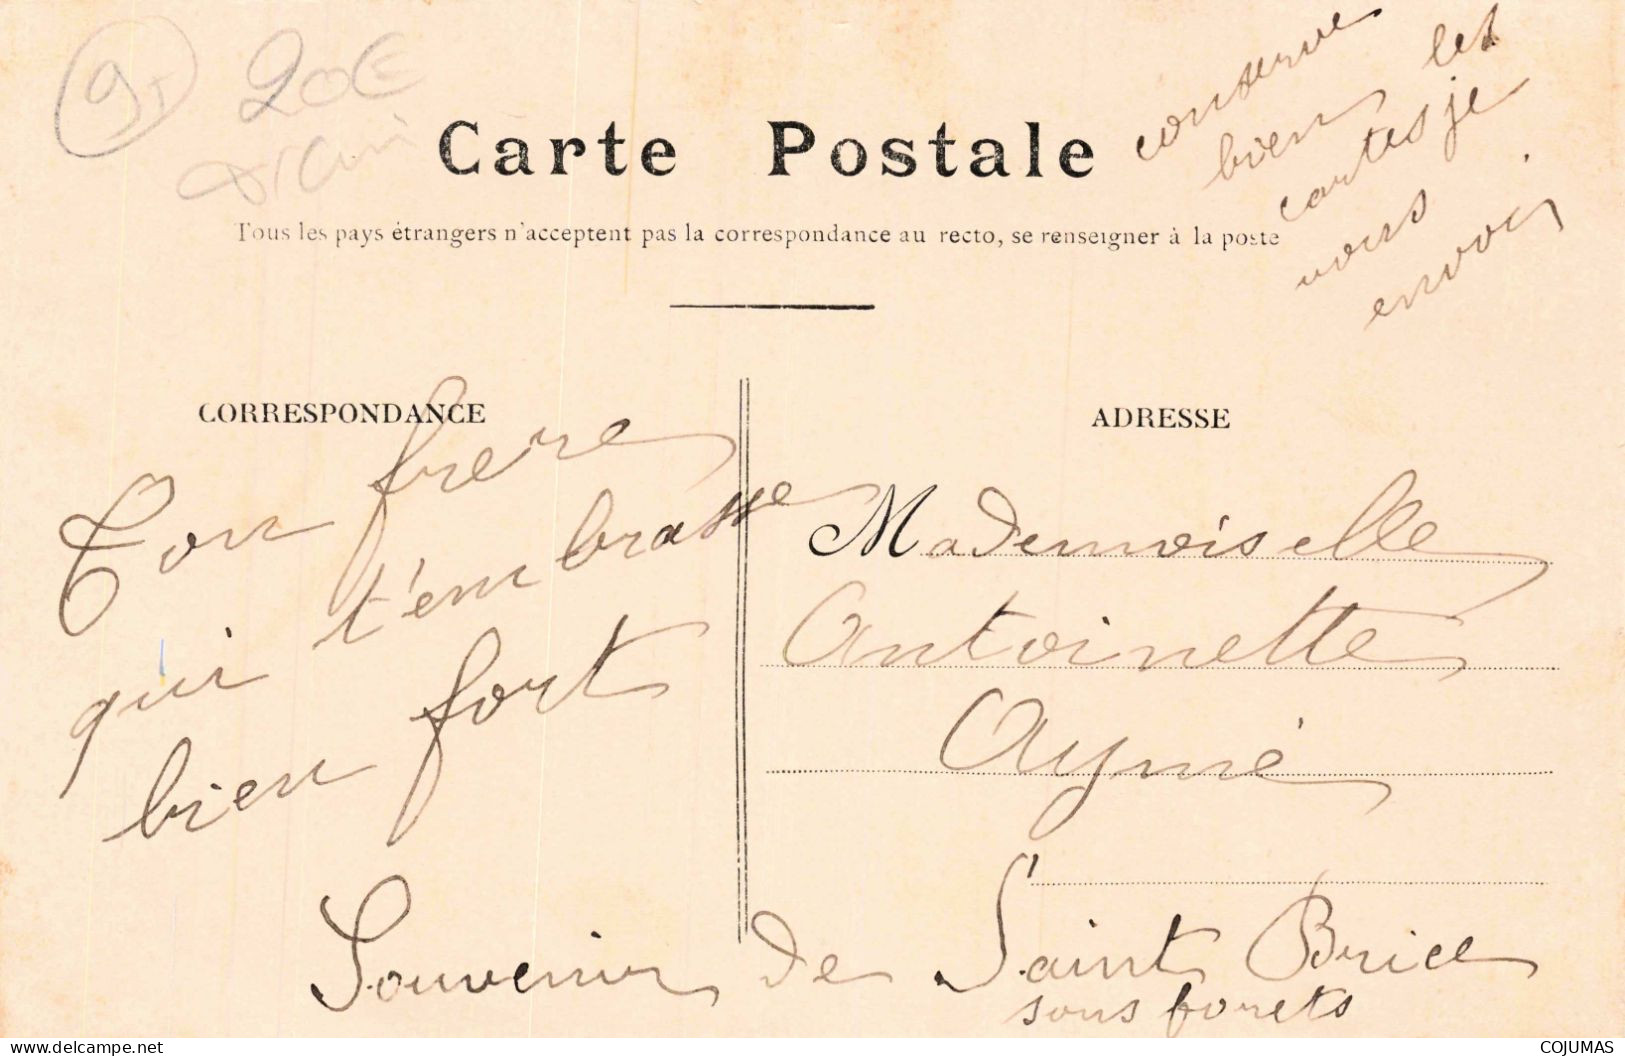 95
20€
Carte Postale
Tous les pays étrangers n'acceptent pas la correspondance au recto, se renseigner à la poste
conserve
bien les
cartes je
vous
envoi
CORRESPONDANCE
Ton frere
qui t'embrasse
bien fort
ADRESSE
Mademoiselle
Antoinette
Aymé
Souvenir de Saint Brice
sous forets
www.delcampe.net
COJUMAS